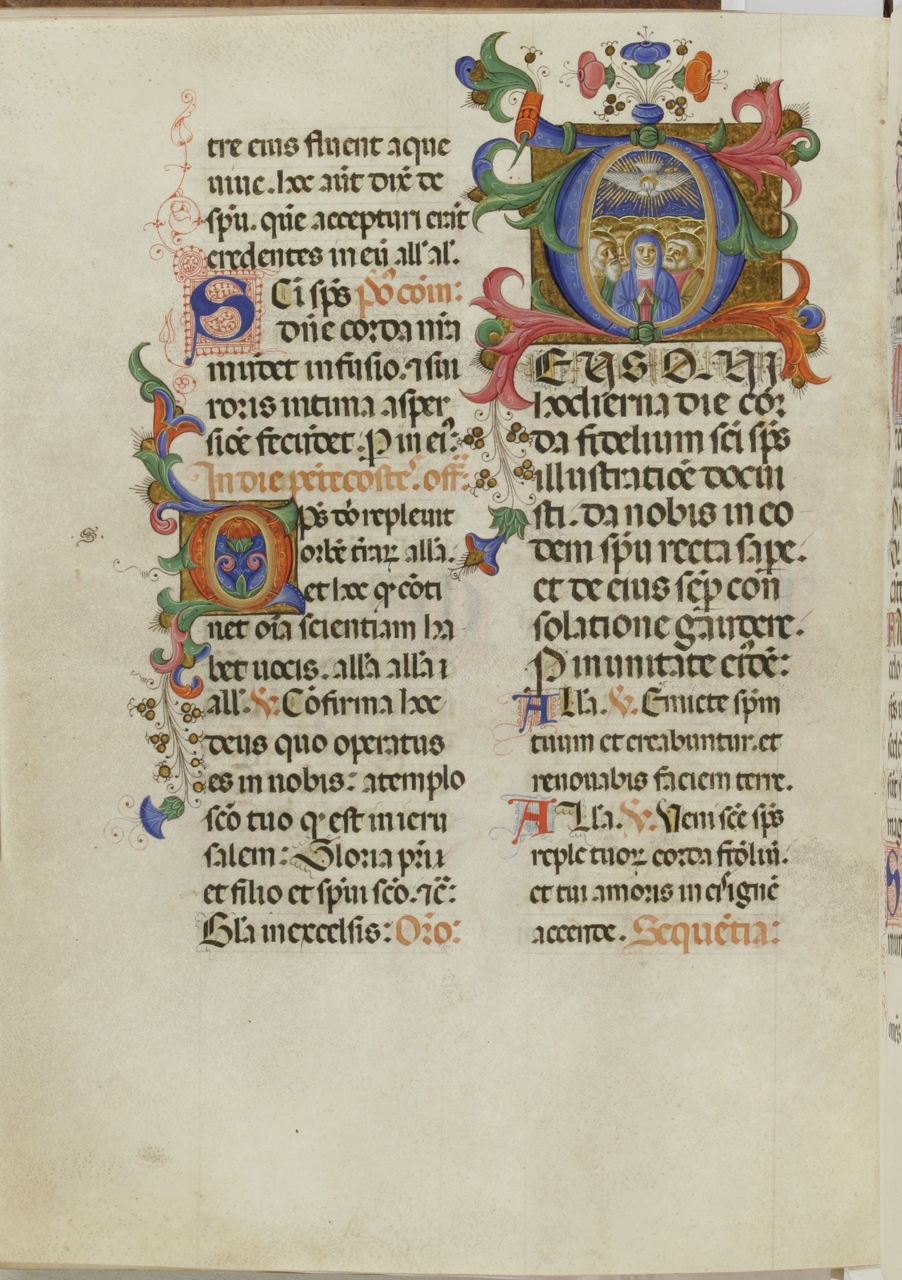 tre eius fluent aque
uiue. hec aūt dix̄ de
spū. quē accepturi erāt
credentes in eū all' al'.
SCi sp̄s p̄o com̄:
dn̄e corda nr̄a
mūdet infusio. ⁊ sui
roris intima asper
siōe fecūdet. P in ei:
In die pētecoste. off:
Sp̄s dō repleuit
orbē t̄raꝝ alla.
et hec qꝫ cōti
net oīa scientiam ha
bet uocis. alla alla i
all. V. Cōfirma hec
deus quo operatus
es in nobis: a templo
scō tuo qꝫ est in ieru
salem: Gloria pr̄i ⁊
et filio et spūi scō. ⁊c̄:
Gl̄a in excelsis: Or̄o:
DEUS Q UI
hodierna die cor
da fidelium sci sp̄s
illustratiōe docui
sti. da nobis in eo
dem spū recta sape.
et de eius sēp con
solatione gaudere.
P in unitate ei'dē:
Alla. V. Emicte spm̄
tuum et creabuntur. et
renouabis faciem terre.
Alla. V. Veni scē sp̄s
reple tuoꝝ corda fidliū.
et tui amoris in eis ignē
accende. Sequētia: